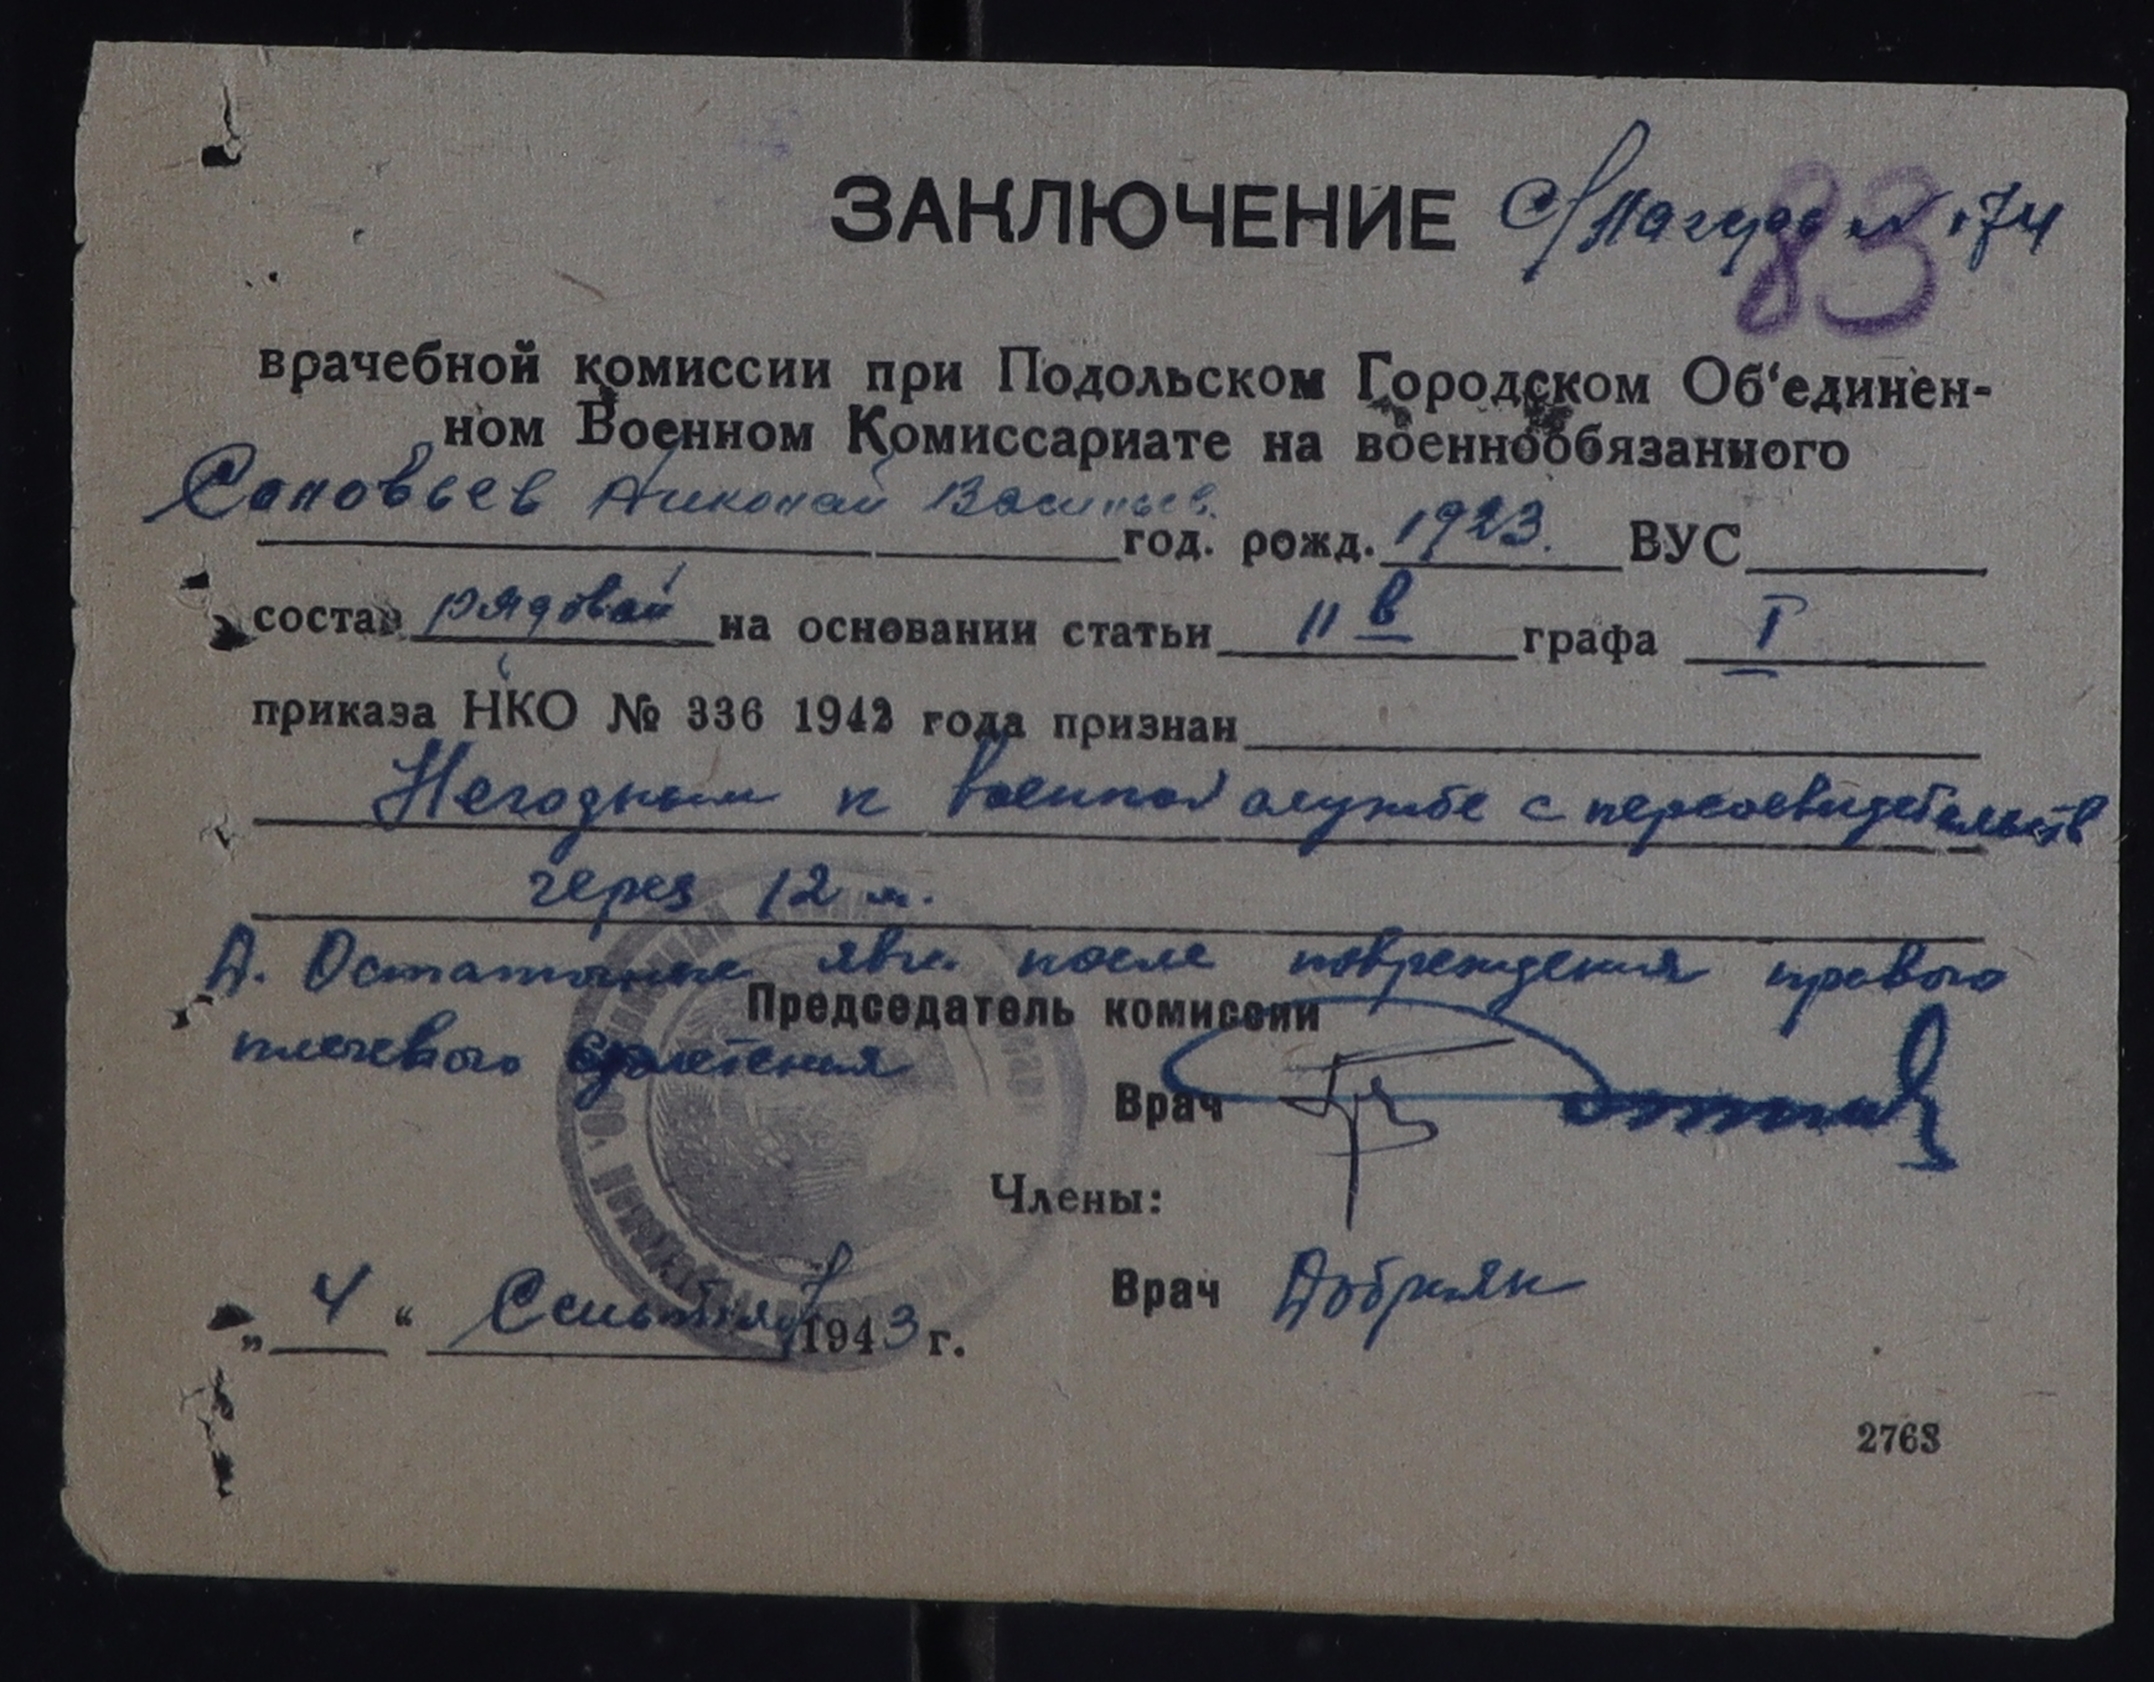 ЗАКЛЮЧЕНИЕ
83
врачебной комиссии при Подольском Городском Об‘единен-
ном Военном Комиссариате на военнообязанного
Соловьев Николай Васильев.
год. рожд. 1923. ВУС
состав рядовой на основании статьи 11 в графа I
приказа НКО № 336 1942 года признан
Негодным к военной службе с переосвидетельств
через 12 м.
Д. Остаточные явл. после повреждения правого
Председатель комиссии
плечевого сплетения
Врач
Члены:
Врач Добриян
„ 4 “ Сентября 1943 г.
2763